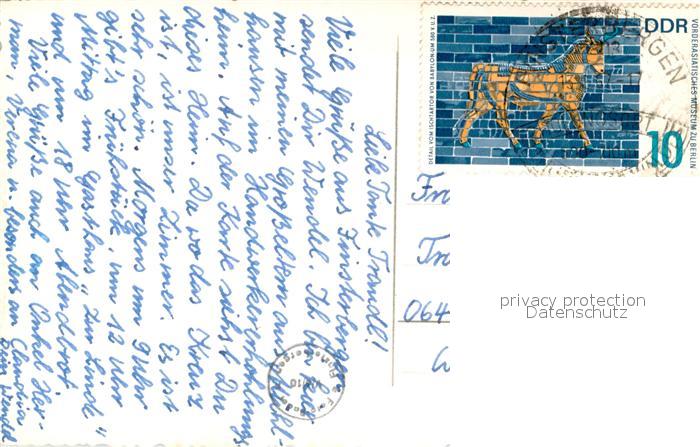 Liebe Tante Traudl!
Viele Grüße aus Finsterbergen
sendet Dir Wendel. Ich bin hier
mit meinen Großeltern zur
in Handwerkererholungs-
heim. Auf der Karte siehst Du
dieses Heim. Da wo das Kreuz
ist ist unser Zimmer. Es ist
sehr schön. Morgens um 9 Uhr
gibt's Frühstück, um 12 Uhr
Mittag im Gasthaus "Zur Linde"
und um 18 Uhr Abendbrot.
Viele Grüße auch an Onkel Her-
mann, Verena u. besonders an Claudia
Dein Wendel
DDR
10
DETAIL VOM ISCHTARTOR VON BABYLON UM 580 V.U.Z.
VORDERASIATISCHES MUSEUM ZU BERLIN
FINSTERBERGEN
Fr
Tr
064
privacy protection
Datenschutz